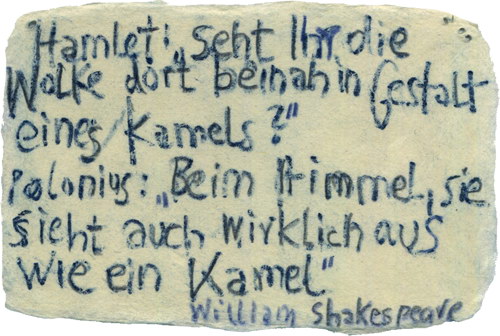 Hamlet: „Seht Ihr die
Wolke dort beinah in Gestalt
eines Kamels?"
Polonius: „Beim Himmel, sie
sieht auch wirklich aus
wie ein Kamel"
William Shakespeare